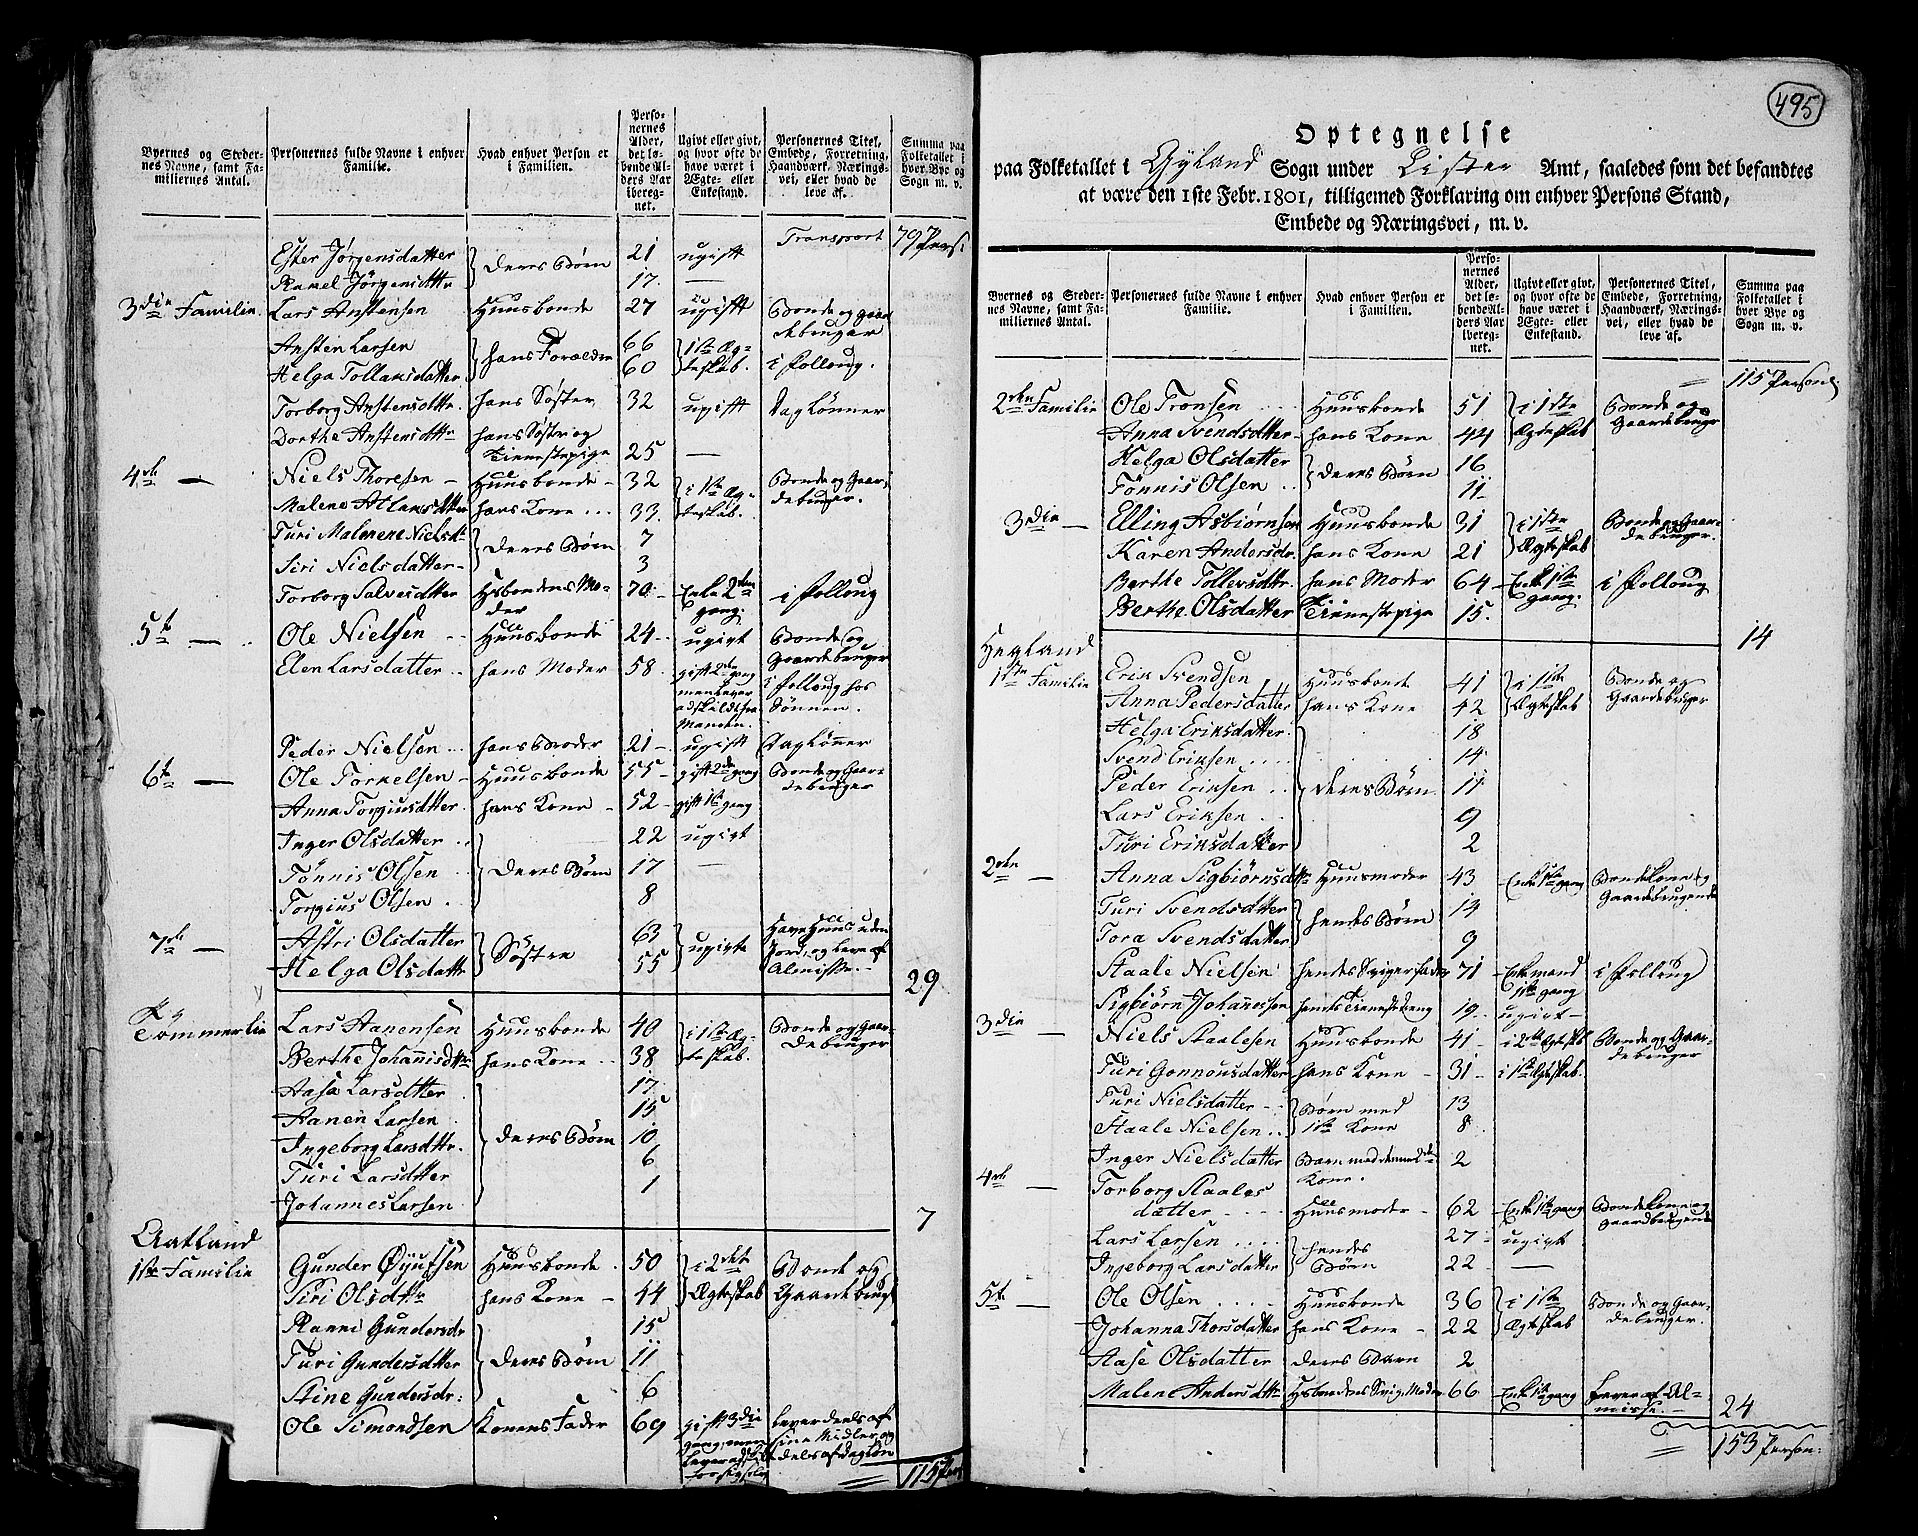 Byernes og Stedernes Navne, samt Familiernes Antal.
Personernes fulde Navne i enhver Familie.
Hvad enhver Person er i Familien.
Personernes Alder, det løbende Alders Aar iberegnet.
Ugivt eller givt, og hvor ofte de have været i Ægte- eller Enkestand.
Personernes Titel, Embede, Forretning, Haandværk, Næringsvei, eller hvad de leve af.
Summa paa Folketallet i hver Bye og Sogn m. v.
Transport 797 Pers:
Ester Jørgensdatter } deres Børn 21 ugift
Ramel Jörgensdttr 17. —
3die Familie. Lars Anstensen Huusbonde 27 ugift Bonde og gaardebruger
Ansten Larsen } hans Forælder 66 } 1ste Ægteskab. i Folloug.
Helga Tollaksdatter 60
Torborg Anstensdttr. hans Søster 32 ugift Daglønner
Dorthe Anstensdttr hans Søster og Tienestepige 25 —
4de — Niels Thoresen Huusbonde 32 } i 1ste Ægteskab. Bonde og Gaardebruger.
Malene Atlaksdtter hans Kone 33.
Turi Malenene Nielsdr } deres Børn 7
Siri Nielsdatter 3
Torborg Salvesdatter Hsbondens Moder 70 Enke 2den gang. i Folloug
5te — Ole Nielsen Huusbonde 24 ugivt Bonde og Gaardebruger
Elen Larsdatter hans Moder 58. gift 2den gang men lever adskildt fra Manden. i Folloug hos Sönnen.
Peder Nielsen hans Broder 21 ugift Daglønner
6te — Ole Torkelsen Huusbonde 55 gift 2de gang Bonde og Gaardebruger
Anna Torgiusdtter hans Kone 52 gift 1ste gang
Inger Olsdatter } deres Børn 22 ugivt
Tönnis Olsen 17 —
Torgius Olsen 8
7de — Astri Olsdatter } Søstre 63 } ugivte Have Huus uden Jord, og leve af Almisse.
Helga Olsdattr 55
29
Tömmerlie Lars Aanensen Huusbonde 40 } i 1ste Ægteskab. Bonde og Gaardebruger
Berthe Johannisdttr hans Kone 38
Aasa Larsdatter } deres Børn 17
Aanen Larsen 15
Ingeborg Larsdttr. 10
Turi Larsdtter 6
Johannes Larsen 1
7
Aatland
1ste Familie Gunder Øyufsen Huusbonde 50 } i 2det Ægteskab Bonde og Gaardebruger
Siri Olsdttr hans Kone 44
Ranni Gundersdr } deres Børn 15
Turi Gundersdtter 11
Stine Gundersdr: 6
Ole Simondsen Konens Fader 69 gift 3die gang, men lever deels af sine Midler og deels af Dagløn
115 Pers
495
Optegnelse
paa Folketallet i Gyland Sogn under Lister Amt, saaledes som det befandtes
at være den 1ste Febr. 1801, tilligemed Forklaring om enhver Persons Stand,
Embede og Næringsvei, m. v.
Byernes og Stedernes Navne, samt Familiernes Antal.
Personernes fulde Navne i enhver Familie.
Hvad enhver Person er i Familien.
Personernes Alder, det løbende Alders Aar iberegnet.
Ugivt eller givt, og hvor ofte de have været i Ægte- eller Enkestand.
Personernes Titel, Embede, Forretning, Haandværk, Næringsvei, eller hvad de leve af.
Summa paa Folketallet i hver Bye og Sogn m. v.
115 Persone
2den Familie Ole Tronsen Huusbonde 51 } i 1ste Ægteskab Bonde og Gaardebruger
Anna Svendsdtter hans Kone 44
Helga Olsdatter } deres Börn 16
Tönnis Olsen 11
3die — Elling Asbiörnsen Huusbonde 31 } i 1ste Ægteskab Bonde og Gaardebruger.
Karen Andersdr. hans Kone 21
Berthe Tollevsdttr. hans Moder 64 Enke 1ste gang. i Folloug
Berthe Olsdatter Tienestepige 15.
14
Hegland
1ste Familie Erik Svendsen Huusbonde 41 } i 1ste Ægteskab Bonde og Gaardebruger
Anna Pedersdatter hans Kone 42
Helga Eriksdatter } deres Børn 18
Svend Eriksen 14
Peder Eriksen 11
Lars Eriksen 9
Turi Eriksdatter 2
2den — Anna Sigbiörnsdttr Huusmoder 43 Enke 1ste gang Bondekone og Gaardebrugende
Turi Svendsdatter } hendes Børn 14
Tora Svendsdatter 9
Staale Nielsen hendes Svigerfader 71 Enkemand 1ste gang i Folloug
Sigbiörn Johannessen hendes Tienestedreng 19. ugivt
3die — Niels Staalesen Huusbonde 41 i 2det Ægteskb Bonde og Gaardebruger
Turi Gonnousdatter hans Kone 31 i 1ste Ægteskab.
Turi Nielsdatter } Børn med 1ste Kone 13
Staale Nielsen 8
Inger Nielsdatter Barn med denne 2de Kone. 2
4de — Torborg Staalesdatter Huusmoder 62 Enke 1ste gang Bondekone og gaardbrugende
Lars Larsen } hendes Børn 27 ugivt
Ingeborg Larsdatter 22 —
5te — Ole Olsen Huusbonde 36 } i 1ste Ægteskab Bonde og Gaardebruger.
Johanna Thorsdatter hans Kone 22
Aase Olsdatter deres Barn 2
Malene Andersdttr Hsbondens Svig. Moder 66 Enke 1ste gang Lever af Almisse.
24
153 Person: